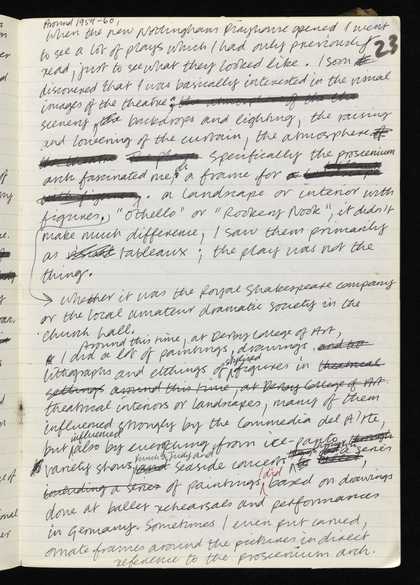 Around 1959-60,
When the new Nottingham Playhouse opened I went
23
to see a lot of plays which I had only previously
read, just to see what they looked like. I soon
discovered that I was basically interested in the visual
images of the theatre; the atmosphere of the the
scenery, the backdrops and lighting, the raising
and lowering of the curtain, the atmosphere of
the theatre. The play Specifically the proscenium
arch fascinated me, a frame for a
. a landscape or interior with
figures, "Othello" or "Rookery Nook", it didn't
make much difference, I saw them primarily
as tableaux; the play was not the
thing.
whether it was the Royal Shakespeare company
or the local amateur dramatic society in the
church hall.
Around this time, at Derby College of Art,
I did a lot of paintings, drawings and
stylised
lithographs and etchings of figures in theatrical
settings around this time, at Derby College of Art
theatrical interiors or landscapes, many of them
influenced strongly by the Commedia del A'rte,
influenced
but also by everything from ice-
Punch & Judy and
variety shows, and seaside concert a series
including a series of paintings based on drawings
did
done at ballet rehearsals and performances
in Germany. Sometimes I even put carved,
ornate frames around the pictures in direct
reference to the proscenium arch.